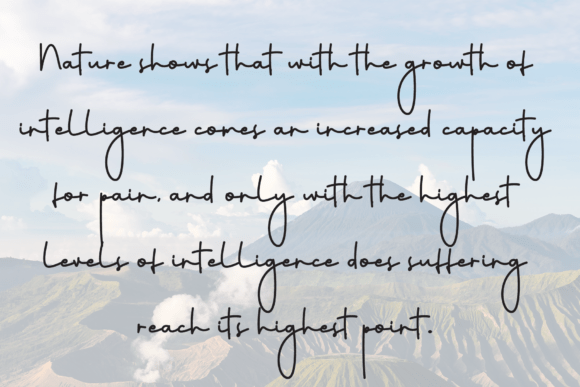 Nature shows that with the growth of
intelligence comes an increased capacity
for pain, and only with the highest
levels of intelligence does suffering
reach its highest point.